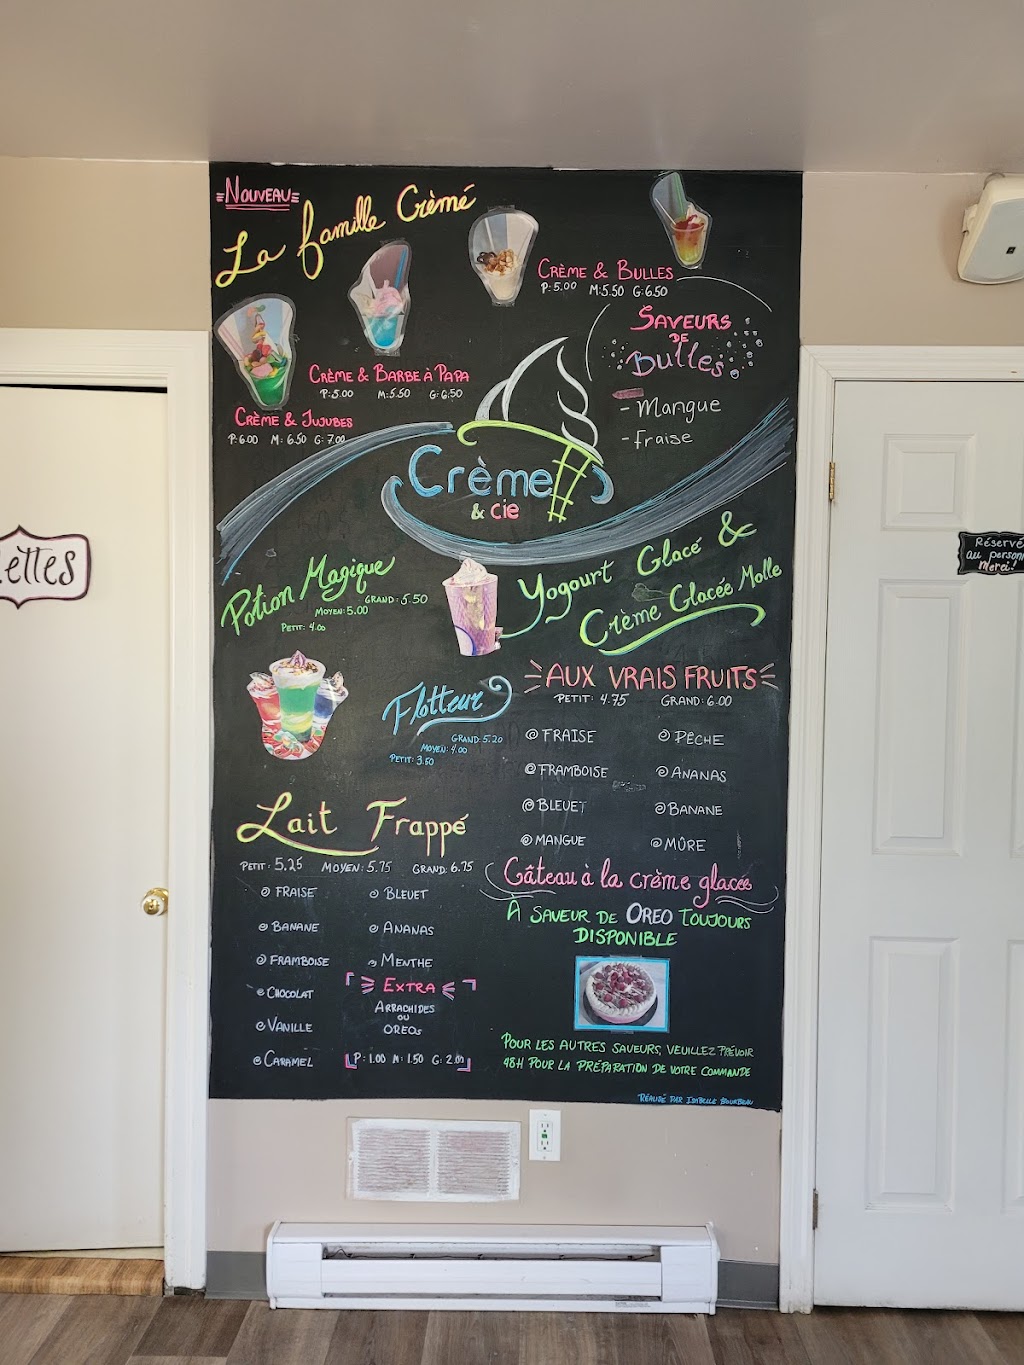 Nouveau
La famille Crémé
Crème & Bulles
P: 5.00 M: 5.50 G: 6.50
Saveurs
de
Bulles
- Mangue
- fraise
Crème & Barbe à Papa
P: 5.00 M: 5.50 G: 6.50
Crème & Jujubes
P: 6.00 M: 6.50 G: 7.00
Crème
& cie
Potion Magique
Grand: 5.50
Moyen: 5.00
Petit: 4.00
Yogourt Glacé &
Crème Glacée Molle
AUX VRAIS FRUITS
Petit: 4.75 Grand: 6.00
Fraise
Pêche
Framboise
Ananas
Bleuet
Banane
Mangue
Mûre
Flotteur
Grand: 5.20
Moyen: 4.00
Petit: 3.50
Lait Frappé
Petit: 5.25 Moyen: 5.75 Grand: 6.75
Fraise
Bleuet
Banane
Ananas
Framboise
Menthe
Chocolat
Vanille
Caramel
Extra
Arrachides
ou
Oreos
P: 1.00 M: 1.50 G: 2.00
Gâteau à la crème glacée
À saveur de Oreo toujours
disponible
Pour les autres saveurs, veuillez prévoir
48h pour la préparation de votre commande
Réalisé par Isabelle Bourbeau
lettes
Réservé
au personn
Merci!